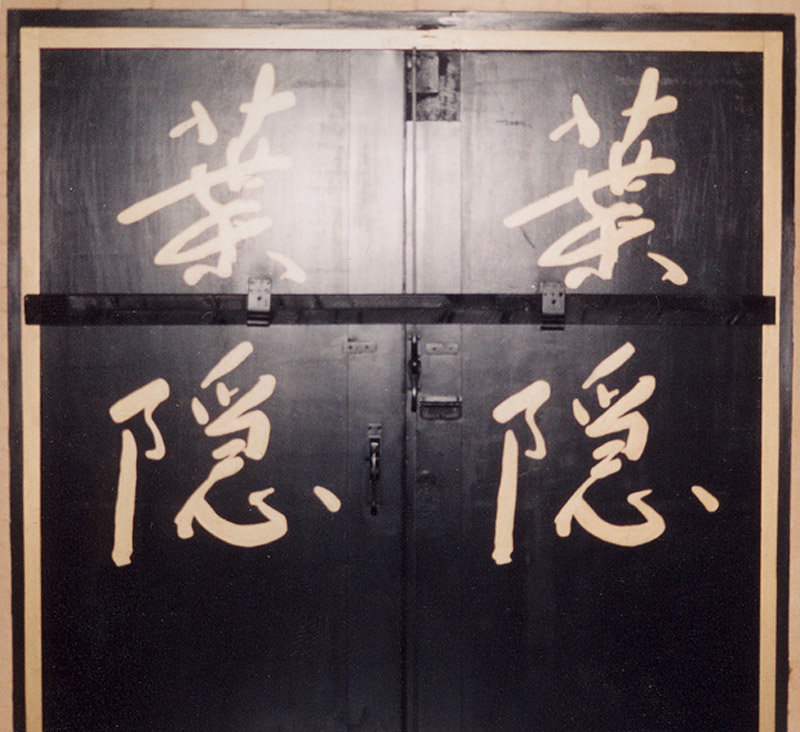 葉隠
葉隠